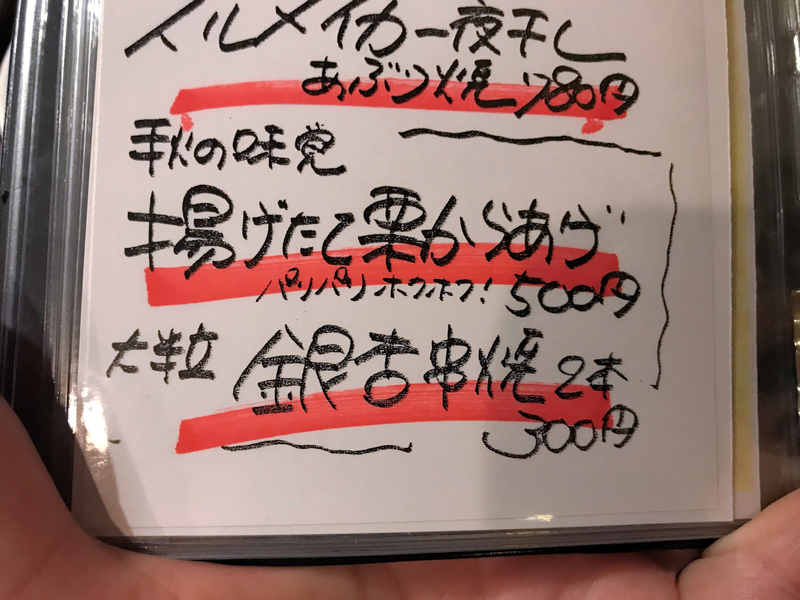 イルメイカ一夜干し
あぶり焼 780円
秋の味覚
揚げたて栗からあげ
パリパリホクホク! 500円
大粒 銀杏串焼 2本
300円